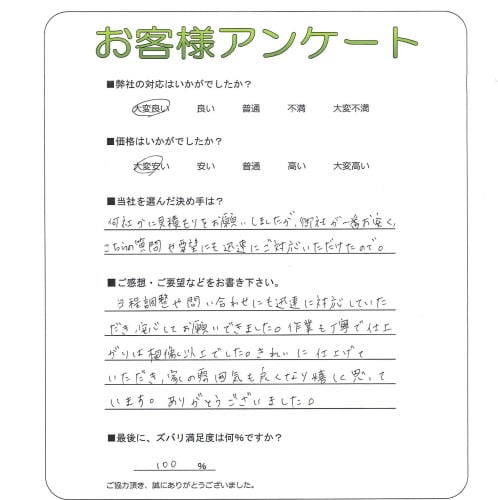 お客様アンケート
■弊社の対応はいかがでしたか？
大変良い 良い 普通 不満 大変不満
■価格はいかがでしたか？
大変安い 安い 普通 高い 大変高い
■当社を選んだ決め手は？
何社かに見積もりをお願いしましたが、御社が一番お安く、
こちらの質問や要望にも迅速にご対応いただけたので。
■ご感想・ご要望などをお書き下さい。
日程調整や問い合わせにも迅速に対応していた
だき、安心してお願いできました。作業も丁寧で仕上
がりは想像以上でした。きれいに仕上げて
いただき、家の雰囲気も良くなり嬉しく思って
います。ありがとうございました。
■最後に、ズバリ満足度は何%ですか？
100 %
ご協力頂き、誠にありがとうございました。